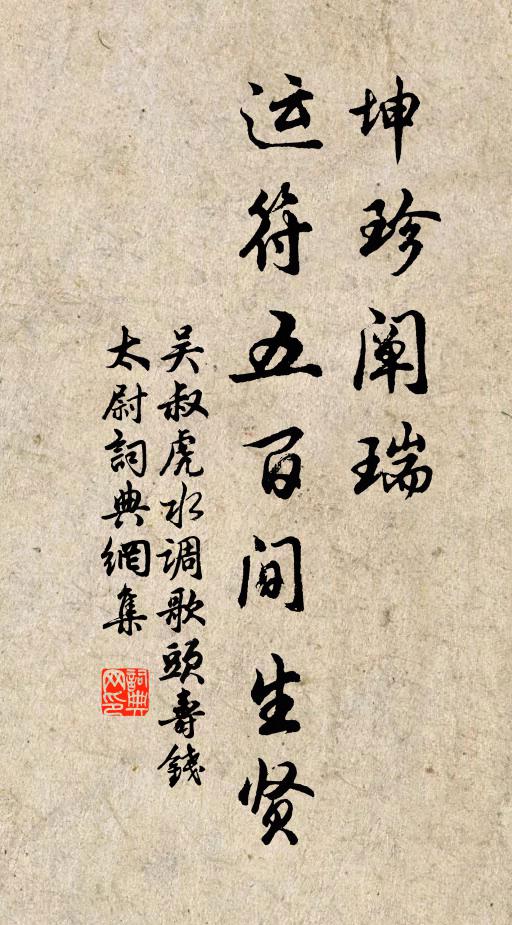 坤珍阐瑞
运符五百间生贤
吴叔虎水调歌头寿錢
太尉詞典網集
詞典
网印